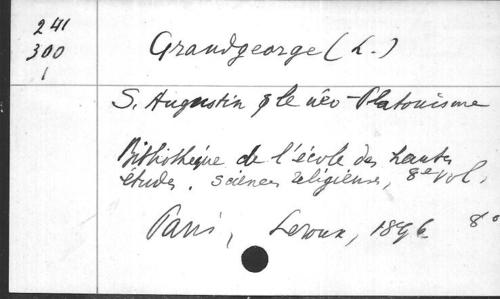 241
300
1
Grandgeorge (L.)
S. Augustin & le néo-Platonisme
Bibliothèque de l'école des hautes
études. Sciences religieuses, 8e vol.
Paris, Leroux, 1896 8o